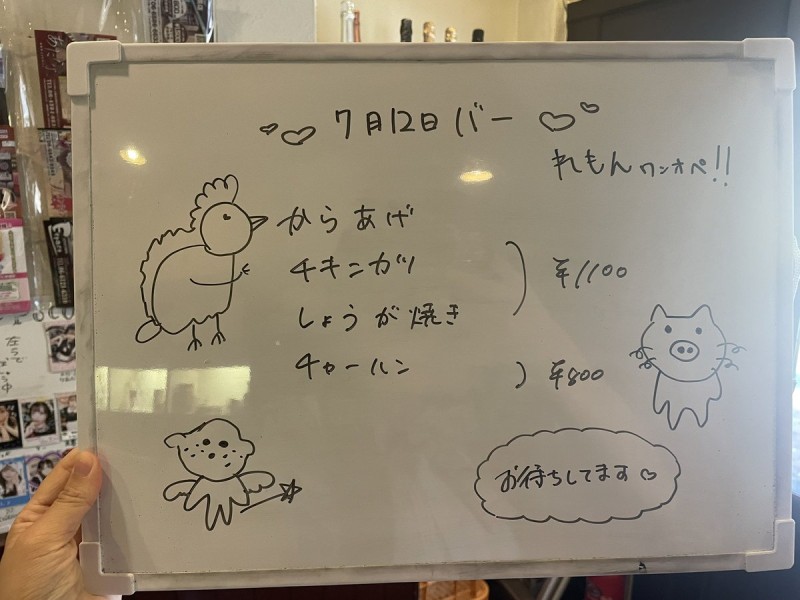 7月12日バー
れもんワンオペ!!
からあげ
チキンカツ
しょうが焼き
¥1100
チャーハン
¥800
お待ちしてます♡